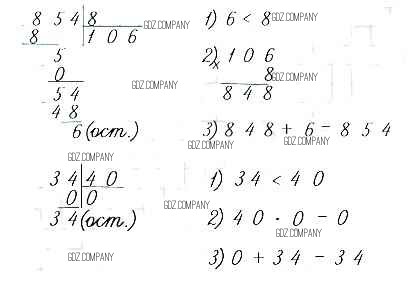 8 5 4 | 8
8 | 1 0 6
5
0
5 4
4 8
6 (ост.)
1) 6 < 8
2) 1 0 6
× 8
8 4 8
3) 8 4 8 + 6 = 8 5 4
3 4 | 4 0
0 | 0
3 4 (ост.)
1) 3 4 < 4 0
2) 4 0 · 0 = 0
3) 0 + 3 4 = 3 4
GDZ.COMPANY
GDZ.COMPANY
GDZ.COMPANY
GDZ.COMPANY
GDZ.COMPANY
GDZ.COMPANY
GDZ.COMPANY
GDZ.COMPANY
GDZ.COMPANY
GDZ.COMPANY